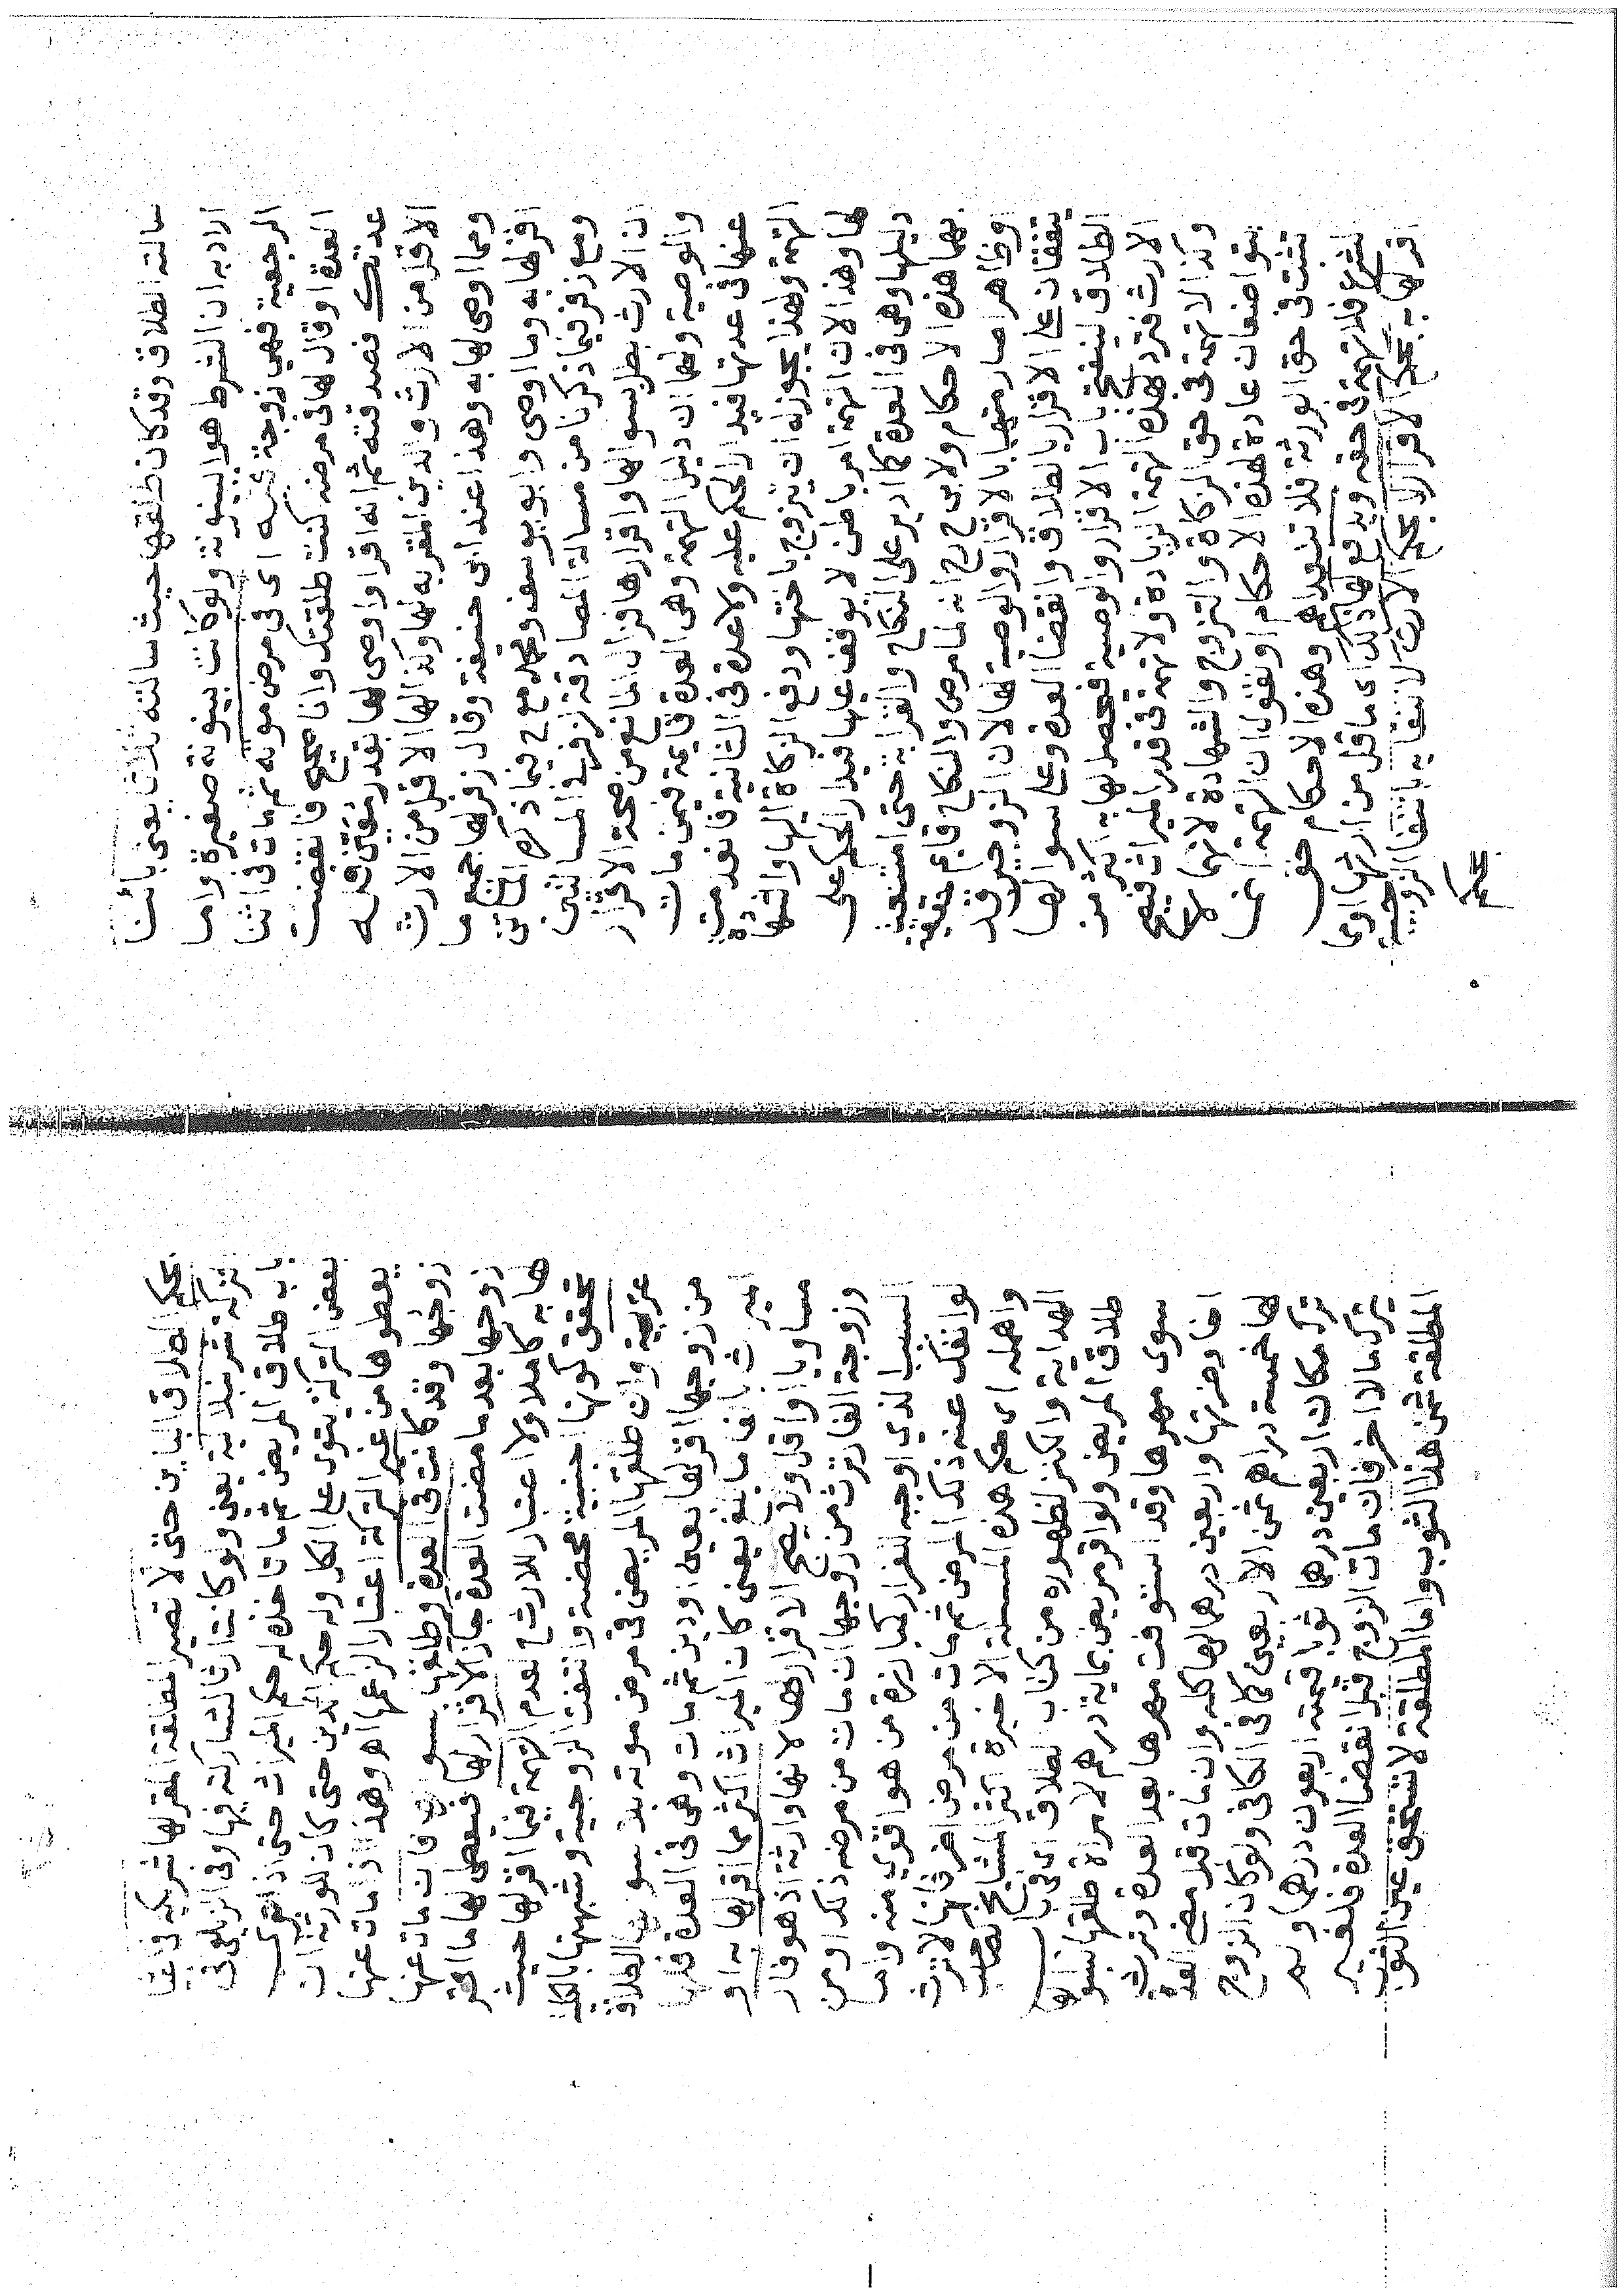 سالته الطلاق وقد كان طلقها حيث سالته ثلاث يعنى بائنا
اراد به ان الشرط هو البينونة ولو كانت بينونة صغيرة واما
الرجعية فهي زوجة اى فى مرض موته ثم مات فى اثنا
العدة او قال لها فى مرضه كنت طلقتك وانا صحيح فانقضت
عدتك فصدقته ثم انه اقر او اوصى لها بقدر
الاقل من الارث والدين المقر به لها وكذا لها الاقل من الارث
ومما اوصى لها به وهذا عند ابى حنيفة وقال زفر لها جميع ما
اقر لها به وما اوصى وابو يوسف ومحمد مع ح فيما ذكر
ومع زفر فيما ذكرنا من مسالة المصادقة لزفر فى المسالتين
ان الارث بطل بسوالها واقرارها فزال المانع من صحة الاقرار
والوصية ولهما ان دليل التهمة وهى العدة قايمة فيمن مات
عنها فى عدتها فيدار الحكم عليه ولا عدة فى الثانية فانعدمت
التهمة ولهذا يجوز له ان يتزوج باختها ودفع الزكاة اليها والشهادة
لها وهذا لان التهمة امر باطن لا يوقف عليها فيدار الحكم على
دليلها وهى فى العدة كما دير على النكاح والقرابة حتى امتنعت
بهما هذه الاحكام ولابى ح رح انه لما مرض والنكاح قايم حقيقة
وظاهرا صار متهما بالاقرار والوصية لها لان الزوجين قد
يتفقان على الاقرار بالطلاق وانقضا العدة وعلى سوالها
الطلاق لينفتح باب الاقرار والوصية فيحصل لها به اكثر من
الارث فترد لهذه التهمة الزيادة ولا تهمة فى قدر الميراث فيصح
وكذا لا تهمة فى حق الزكاة والتزوج والشهادة لانهما لا
يتواضعان عادة لهذه الاحكام او نقول ان التهمة انما
تثبت فى حق الورثة فلا تعدوهم وهذه الاحكام حق
الشرع فلا تهمة فى حقه ويدفع لها ذلك اى ما قل من ارثها او ى
اقر لها به بحكم الاقرار لا بحكم الارث لانتفايه بانتفا الزوجية
بحكم
بحكم الطلاق الباين حتى لا تصير المطلقة المقر لها شريكة فى اعيا
تركته شرنبلالية يعنى ولو كانت ارثا لشاركته فيها وفى الزيلعى فى
باب طلاق المريض ثم ما تاخذه له حكم الميراث حتى اذا توى
بعض التركة يتوى على الكل وله حكم الدين حتى كان للورثة ان
يعطوها من غير التركة اعتبارا لزعمها اهـ وهذا اذا مات عنها
زوجها وقد كانت فى العدة وطلقها بسوالها فان مات عنها
زوجها بعد ما مضت العدة جاز الاقرار لها فيعطى لها ما اقر
لها به كاملا ولا اعتبار للارث ح لعدم التهمة فيما اقر لها حيث
تحقق كونها اجنبية محضة وانتفت الزوجية وشبهتها بالكلية
عزمية وان طلقها المريض فى مرض موته بلا سوالها الطلاق
من زوجها اقر لها بعين او دين ثم مات وهى فى العدة فلها
الميراث بالغا ما بلغ يعنى كان الميراث اكثر مما اقر لها به او
مساويا او اقل ولا يصح الاقرار لها لانها وارثة اذ هو فار
وزوجة الفار ترث من زوجها ان مات من مرضه ذلك او من
السبب الذي اوجبه للفرار كمبارزة من هو اقوي منه واما
لو انفك عنه ذلك المرض ثم مات من مرض اخر فانها لا ترث
واهمله اى حكم هذه المسئلة الاخيرة اكثر المشايخ كصاحب
الهداية والكنز لظهوره من كتاب الطلاق اى فى باب
طلاق المريض ولو اقر مريض بماية درهم لامراة طلقها بسوالها
سوى مهرها وقد استوفت مهرها بعد العدة وترث
افا وضتها واربعين درهما لها كله وان مات قبل مضى العدة
لها خمسة دراهم ثمن الاربعين كما فى الكافى ولو كان الزوج
ترك مكان اربعين درهما ثوبا قيمته اربعون درهما ولم
يترك مالا اخر فان مات الزوج قبل انقضا العدة فللغريم
المطلقة ثمن هذا الثوب واما المطلقة لا تستحق عين الثوب